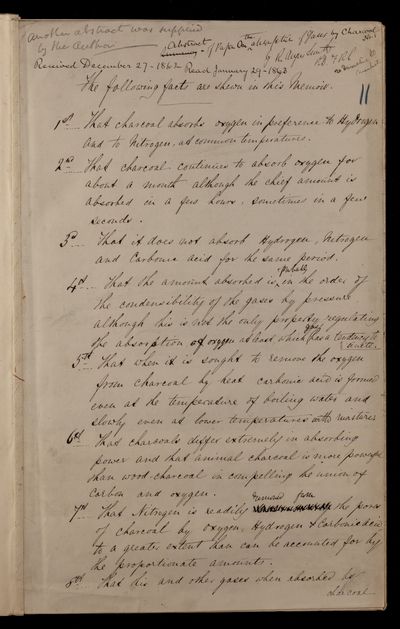 another abstract was supplied
by the Author
Abstract of Paper On the absorption of Gases by Charcoal No. 1
by R. Angus Smith
Ph D F.R.S.
Received December 27 - 1862
Read January 29 - 1863
11
The following facts are shewn in this Memoir.
1st That charcoal absorbs oxygen in preference to Hydrogen
and to Nitrogen, at common temperatures.
2nd That charcoal continues to absorb oxygen for
about a month although the chief amount is
absorbed in a few hours, sometimes in a few
seconds.
3d That it does not absorb Hydrogen, Nitrogen
and Carbonic acid for the same period.
4th That the amount absorbed is probably in the order of
the condensibility of the gases by pressure
although this is not the only property regulating
the absorption of oxygen at least which gas has a tendency to
unite.
5th That when it is sought to remove the oxygen
from charcoal by heat carbonic acid is formed
even at the temperature of boiling water and
slowly even at lower temperatures with moisture
6th That charcoals differ extremely in absorbing
power and that animal charcoal is more powerful
than wood-charcoal in compelling the union of
Carbon and oxygen.
7th That Nitrogen is readily removed from the pores
of charcoal by oxygen, Hydrogen & Carbonic acid
to a greater extent than can be accounted for by
the proportionate amounts.
8th That this and other gases when absorbed by
charcoal